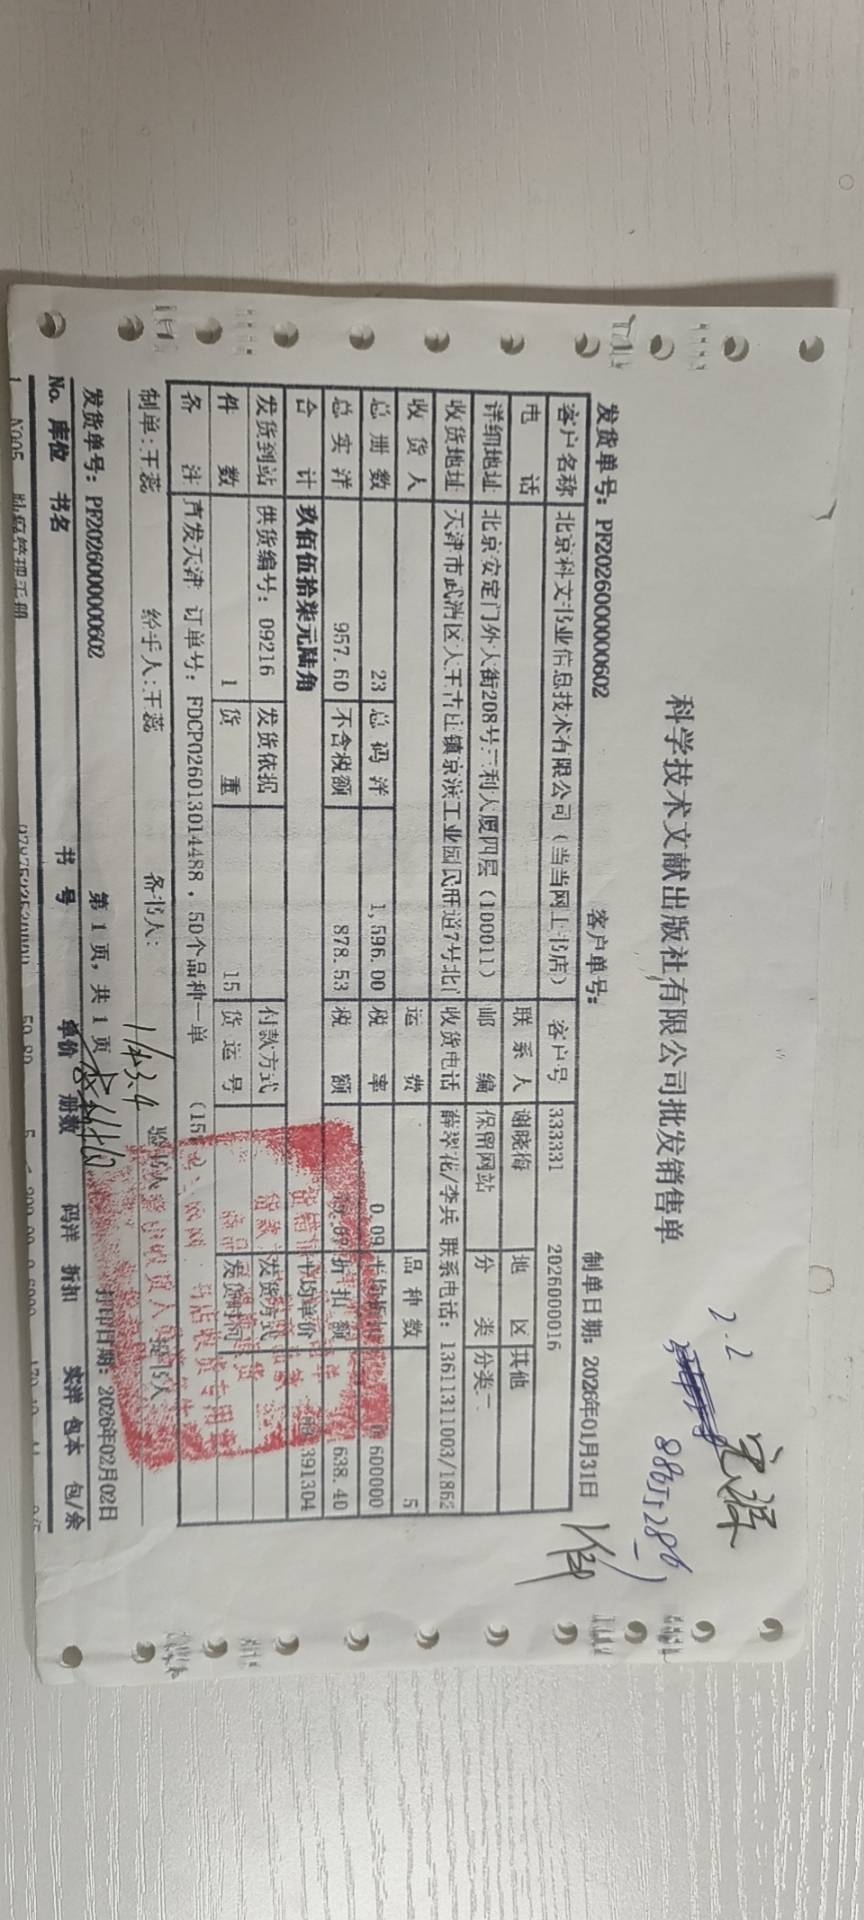 科学技术文献出版社有限公司批发销售单
2.2
886JJ286
发货单号: PF2026000000602 客户单号: 制单日期: 2026年01月31日
客户名称 北京科文书业信息技术有限公司(当当网上书店) 客户号 333331 2026000016
电 话 联系人 谢晓梅 地 区 其他
详细地址 北京安定门外大街208号三利大厦四层(100011) 邮 编 保留网站 分 类 分类一
收货地址 天津市武清区大王古庄镇京滨工业园民旺道7号北门 收货电话 薛翠花/李兵 联系电话: 13611311003/1862
收货人 运 费 品种数 5
总册数 23 总码洋 1,596.00 税 率 0.09 600000
总实洋 957.60 不含税额 878.53 税 额 折扣额 638.40
合 计 玖佰伍拾柒元陆角 平均单价 391304
发货到站 供货编号: 09216 发货依据 付款方式 发货方式
件 数 1 货 重 15 货运号 发货时间
备 注 直发天津 订单号: FDCP026013014488, 50个品种一单
制单:王蕊 经手人:王蕊 备书人: 验书人
发货单号: PF2026000000602 第 1 页, 共 1 页 打印日期: 2026年02月02日
No. 库位 书名 书 号 单价 册数 码洋 折扣 实洋 包本 包/余
1 N005